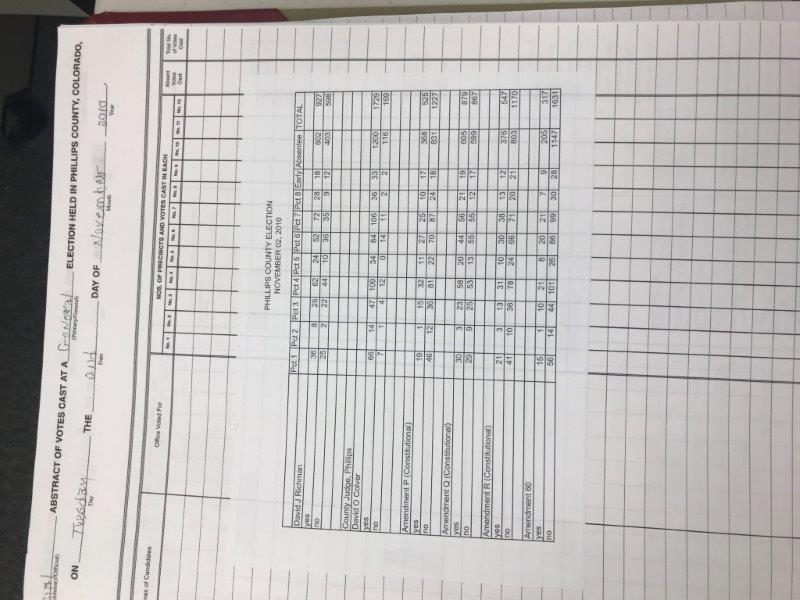 ABSTRACT OF VOTES CAST AT A General ELECTION HELD IN PHILLIPS COUNTY, COLORADO,
(Primary/General)
ON Tuesday THE 2nd DAY OF November 2010
Day Date Month Year
of Candidates Office Voted For NOS. OF PRECINCTS AND VOTES CAST IN EACH Absent Votes Cast Total No. of Votes Cast
No. 1 No. 2 No. 3 No. 4 No. 5 No. 6 No. 7 No. 8 No. 9 No. 10 No. 11 No. 12
PHILLIPS COUNTY ELECTION
NOVEMBER 02, 2010
David J Richman Pct 1 Pct 2 Pct 3 Pct 4 Pct 5 Pct 6 Pct 7 Pct 8 Early Absentee TOTAL
yes 36 8 25 62 24 52 72 28 18 602 927
no 25 2 22 44 10 36 35 9 12 403 598
County Judge, Phillips
David O Colver
yes 66 14 47 109 34 84 106 36 33 1200 1729
no 7 1 4 12 0 14 11 2 2 116 169
Amendment P (Constitutional)
yes 19 1 15 32 11 27 25 10 17 368 525
no 46 12 36 81 22 70 87 24 18 831 1227
Amendment Q (Constitutional)
yes 30 3 23 58 20 44 56 21 19 605 879
no 29 9 25 53 13 55 55 12 17 599 867
Amendment R (Constitutional)
yes 21 3 13 31 10 30 38 13 12 376 547
no 41 10 36 78 24 66 71 20 21 803 1170
Amendment 60
yes 15 1 10 21 8 20 21 7 9 205 317
no 56 14 44 101 26 86 99 30 28 1147 1631